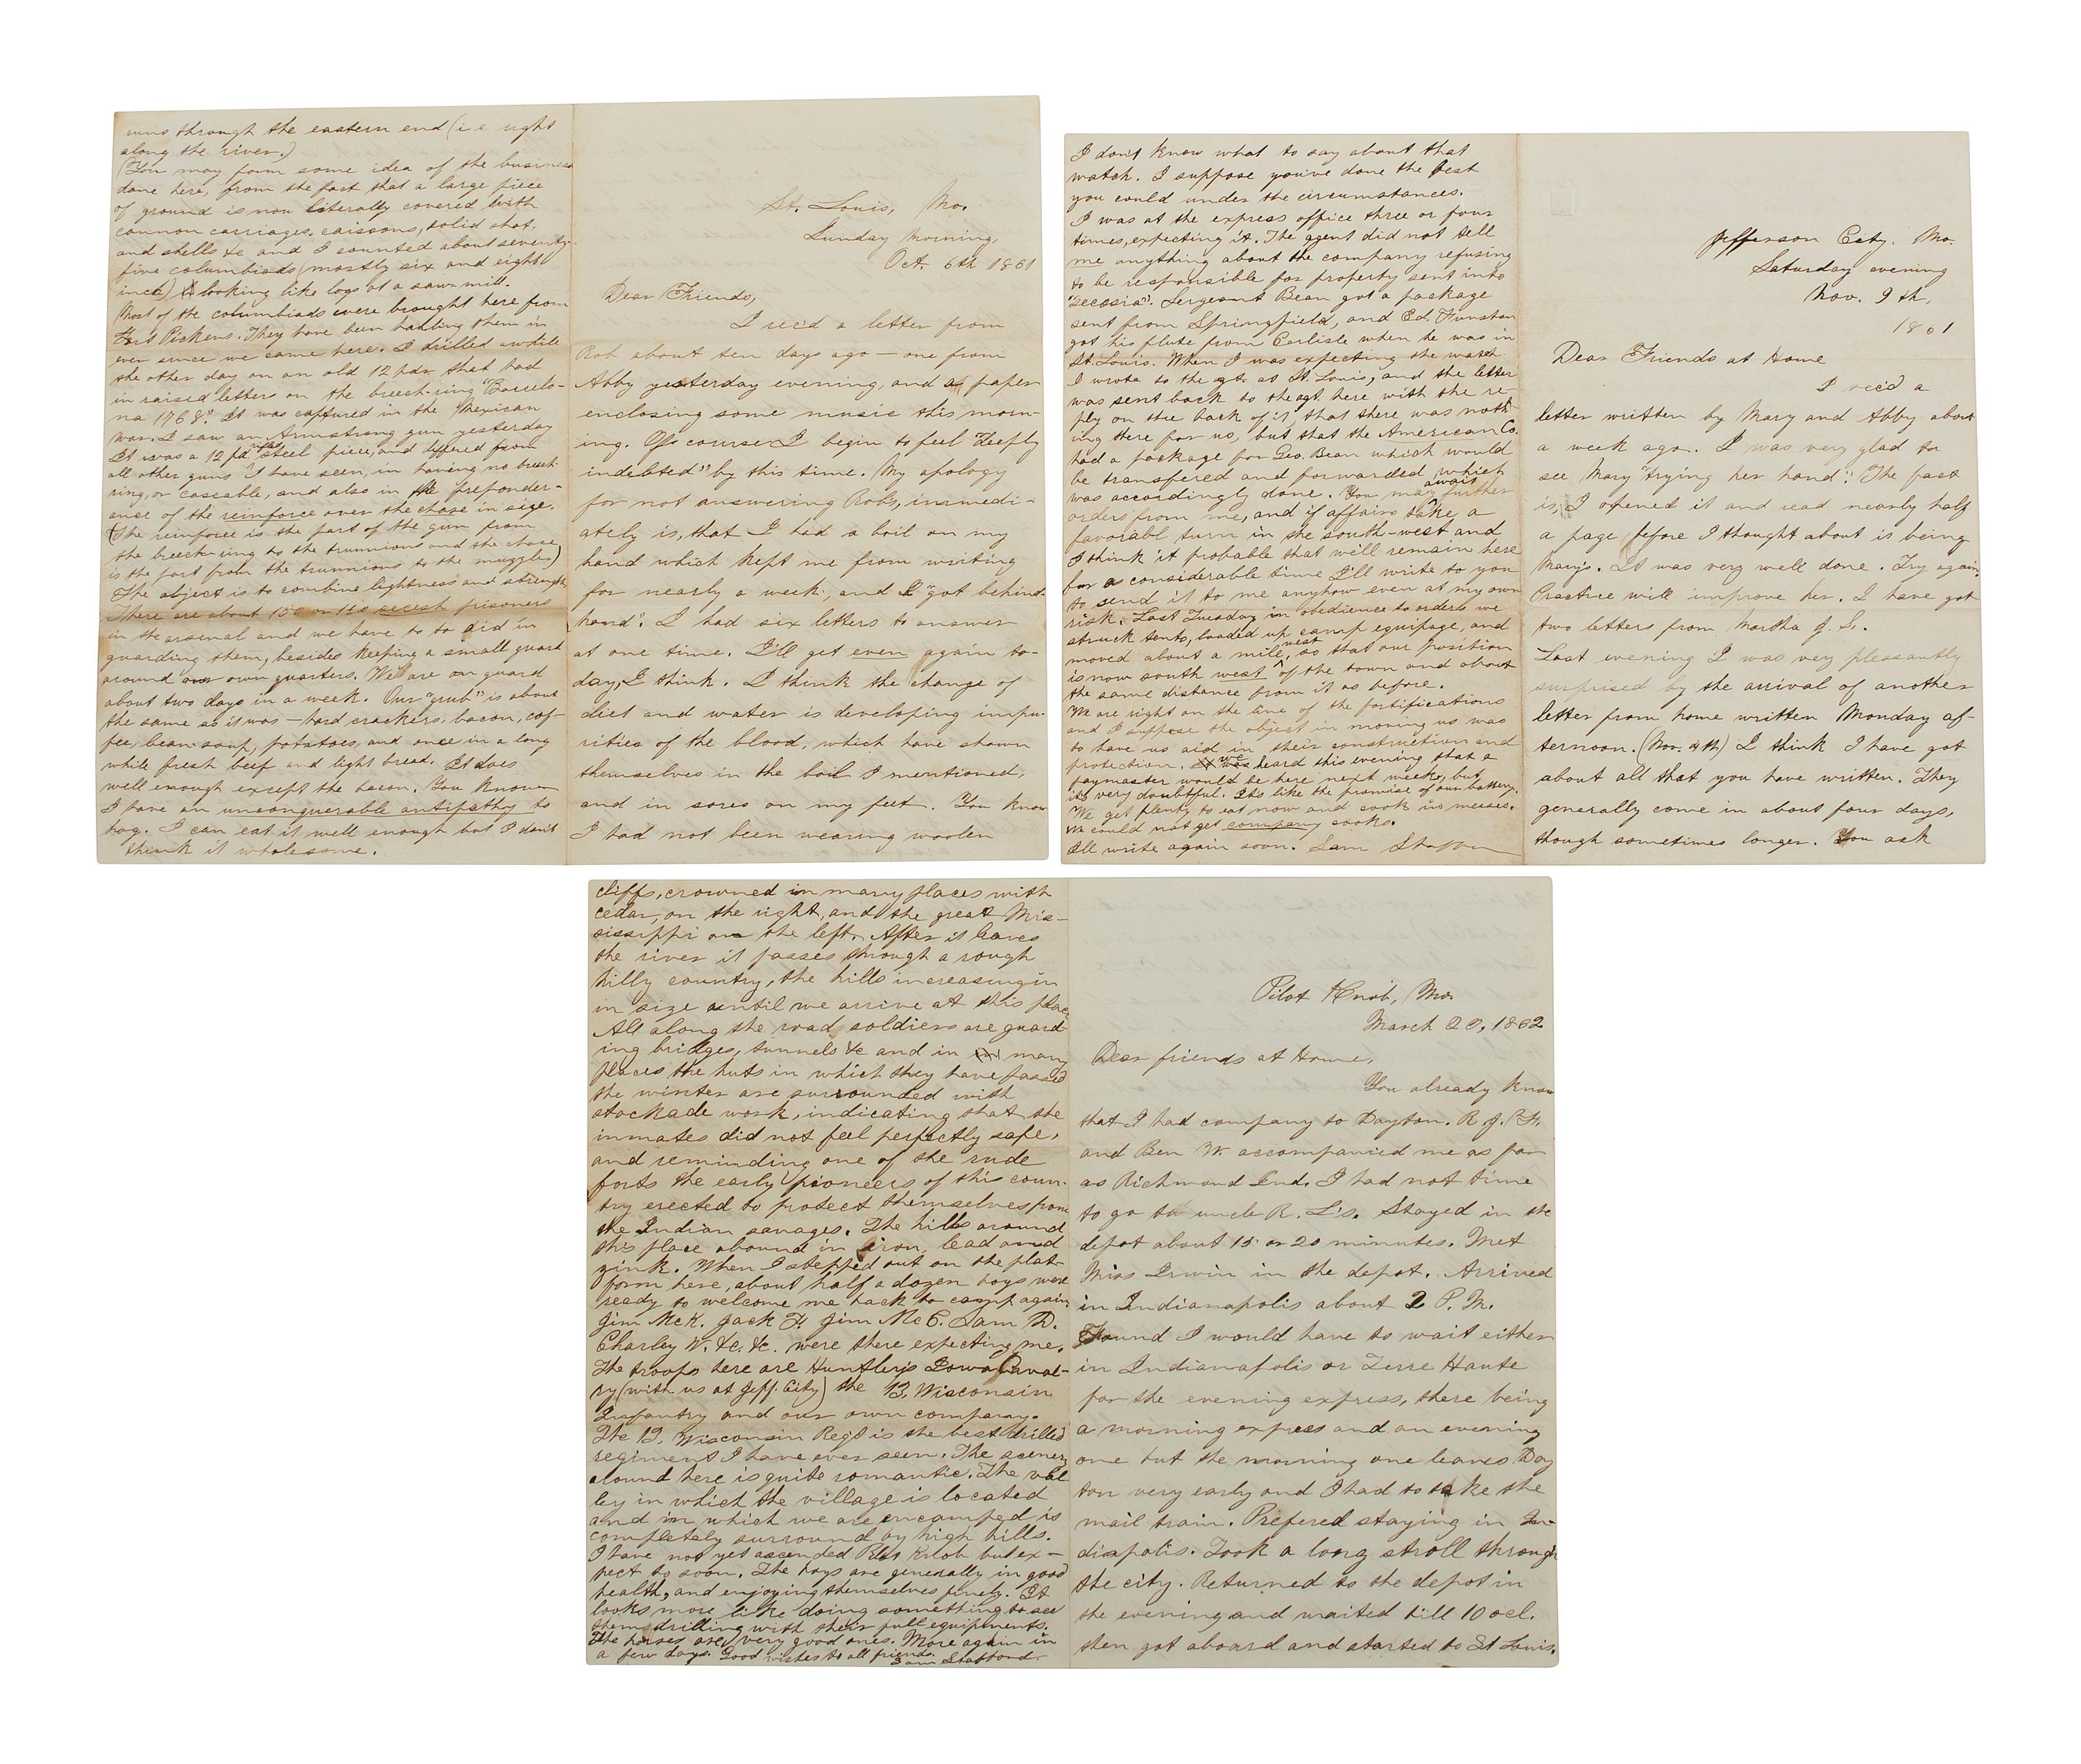 St. Louis, Mo.
Sunday Morning,
Oct. 6th 1861
Dear Friends,
I rec'd a letter from
Rob about ten days ago — one from
Abby yesterday evening, and a paper
enclosing some music this morn-
ing. Of course I begin to feel "deeply
indebted" by this time. My apology
for not answering Rob's, immedi-
ately is, that I had a boil on my
hand which kept me from writing
for nearly a week, and I "got behind
hand". I had six letters to answer
at one time. I'll get even again to-
day, I think. I think the change of
diet and water is developing impu-
rities of the blood, which have shown
themselves in the boil I mentioned,
and in sores on my feet. You know
I had not been wearing woolen
runs through the eastern end (i.e. right
along the river.)
(You may form some idea of the business
done here, from the fact that a large piece
of ground is now literally covered with
cannon carriages, caissons, solid shot,
and shells &c and I counted about seventy-
five columbiads (mostly six and eight
inch) looking like logs at a saw-mill.
Most of the columbiads were brought here from
Fort Pickens. They have been hauling them in
ever since we came here. I drilled awhile
the other day on an old 12 pdr. that had
in raised letters on the breech-ring "Barcelo-
na 1768". It was captured in the Mexican
war. I saw an Armstrong gun yesterday
It was a 12 pd. steel piece, and differed from
all other guns I have seen, in having no breech
ring, or cascable, and also in the preponder-
ance of the reinforce over the chase in size.
(The reinforce is the part of the gun from
the breech-ring to the trunnions and the chase
is the part from the trunnions to the muzzle)
The object is to combine lightness and strength
There are about 150 or 160 secesh prisoners
in the arsenal and we have to to aid in
guarding them, besides keeping a small guard
around our own quarters. We are on guard
about two days in a week. Our "grub" is about
the same as it was — hard crackers, bacon, cof-
fee, bean-soup, potatoes, and once in a long
while fresh beef and light bread. It does
well enough except the bacon. You know
I have an unconquerable antipathy to
hog. I can eat it well enough but I don't
think it wholesome.
Jefferson City, Mo.
Saturday evening
Nov. 9th,
1861
Dear Friends at Home
I rec'd a
letter written by Mary and Abby about
a week ago. I was very glad to
see Mary "trying her hand". The fact
is, I opened it and read nearly half
a page before I thought about is being
Mary's. It was very well done. Try again.
Practice will improve her. I have got
two letters from Martha J. S.
Last evening I was very pleasantly
surprised by the arrival of another
letter from home written Monday af-
ternoon. (Nov. 4th) I think I have got
about all that you have written. They
generally come in about four days,
though sometimes longer. You ask
I don't know what to say about that
watch. I suppose you've done the best
you could under the circumstances.
I was at the express office three or four
times, expecting it. The agent did not tell
me anything about the company refusing
to be responsible for property sent into
"secessia". Sergeant Bean got a package
sent from Springfield, and Ed. Funston
got his flute from Carlisle when he was in
St. Louis. When I was expecting the watch
I wrote to the agt. at St. Louis, and the letter
was sent back to the agt. here with the re-
ply on the back of it, that there was noth-
ing there for us, but that the American Co.
had a package for Geo. Bean which would
be transfered and forwarded, which
was accordingly done. You may await further
orders from me, and if affairs take a
favorabl turn in the south-west and
I think it probable that we'll remain here
for a considerable time I'll write to you
to send it to me anyhow even at my own
risk. Last Tuesday in obedience to orders we
struck tents, loaded up camp equipage, and
moved about a mile west, so that our position
is now south west of the town and about
the same distance from it as before.
We are right on the line of the fortifications
and I suppose the object in moving us was
to have us aid in their construction and
protection. We heard this evening that a
paymaster would be here next week, but
it's very doubtful. Its like the promise of our battery.
We get plenty to eat now and cook in messes.
We could not get company cooks.
I'll write again soon. Sam Stafford
Pilot Knob, Mo.
March 20, 1862
Dear friends at Home,
You already know
that I had company to Dayton. R. J. P. H.
and Ben W. accompanied me as far
as Richmond Ind. I had not time
to go to uncle R. L's. Stayed in the
depot about 15 or 20 minutes. Met
Miss Irwin in the depot. Arrived
in Indianapolis about 2 P. M.
Found I would have to wait either
in Indianapolis or Terre Haute
for the evening express, there being
a morning express and an evening
one but the morning one leaves Day
ton very early and I had to take the
mail train. Prefered staying in In-
diapolis. Took a long stroll through
the city. Returned to the depot in
the evening and waited till 10 ocl.
then got aboard and started to St Louis.
cliffs, crowned in many places with
cedar, on the right, and the great Mis-
sissippi on the left. After it leaves
the river it passes through a rough
hilly country, the hills increasing in
in size until we arrive at this place
All along the road soldiers are guard-
ing bridges, tunnels &c and in many
places the huts in which they have passed
the winter are surrounded with
stockade work, indicating that the
inmates did not feel perfectly safe,
and reminding one of the rude
forts the early pioneers of this coun-
try erected to protect themselves from
the Indian savages. The hills around
this place abound in iron, lead and
zink. When I stepped out on the plat-
form here, about half a dozen boys were
ready to welcome me back to camp again
Jim McK. Jack F. Jim McC. Sam D.
Charley W. &c. &c. were there expecting me.
The troops here are Huntley's Iowa Caval-
ry (with us at Jeff. City) the 13, Wisconsin
Infantry and our own company.
The 13, Wisconsin Reg't is the best drilled
regiment I have ever seen. The scenery
around here is quite romantic. The val
ley in which the village is located
and in which we are encamped is
completely surround by high hills.
I have not yet ascended Pilot Knob but ex-
pect to soon. The boys are generally in good
health, and enjoying themselves finely. It
looks more like doing something to see
them drilling with their full equipments.
The horses are very good ones. More again in
a few days. Good wishes to all friends.
Sam Stafford